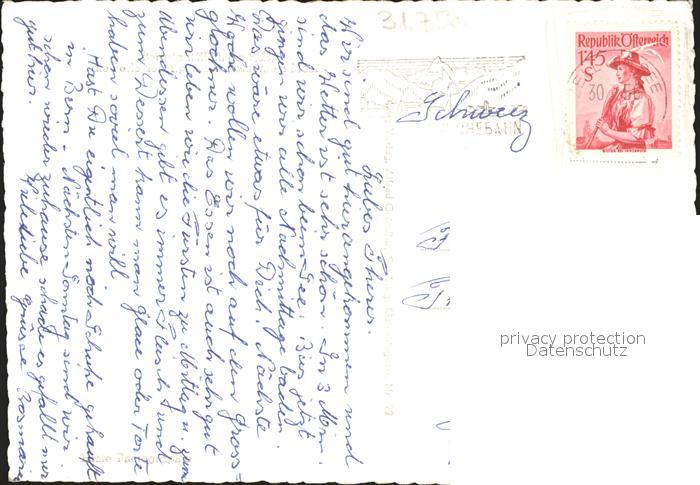 31.7.56
Republik Österreich
1 45
S
30
Schweiz
SEILBAHN
Liebes Theres.
Wir sind gut hier angekommen und
das Wetter ist sehr schön. In 3 Min.
sind wir schon beim See. Bis jetzt
ging wir alle Nachmittage baden.
Das wäre etwas für Dich. Nächste
Woche wollen wir noch auf den Gross=
glockner. Das Essen ist auch sehr gut
wir leben wie die Fürsten zu Mittag u. zum
Abendessen gibt es immer Fleisch und
zum Dessert kann man Glace oder Torte
haben soviel man will
Hast Du eigentlich noch Schuhe gekauft
in Bern - Nächsten Sonntag sind wir
schon wieder zuhause schade es gefällt mir
gut hier.
Viele liebe grüsse Rosmarie
privacy protection
Datenschutz